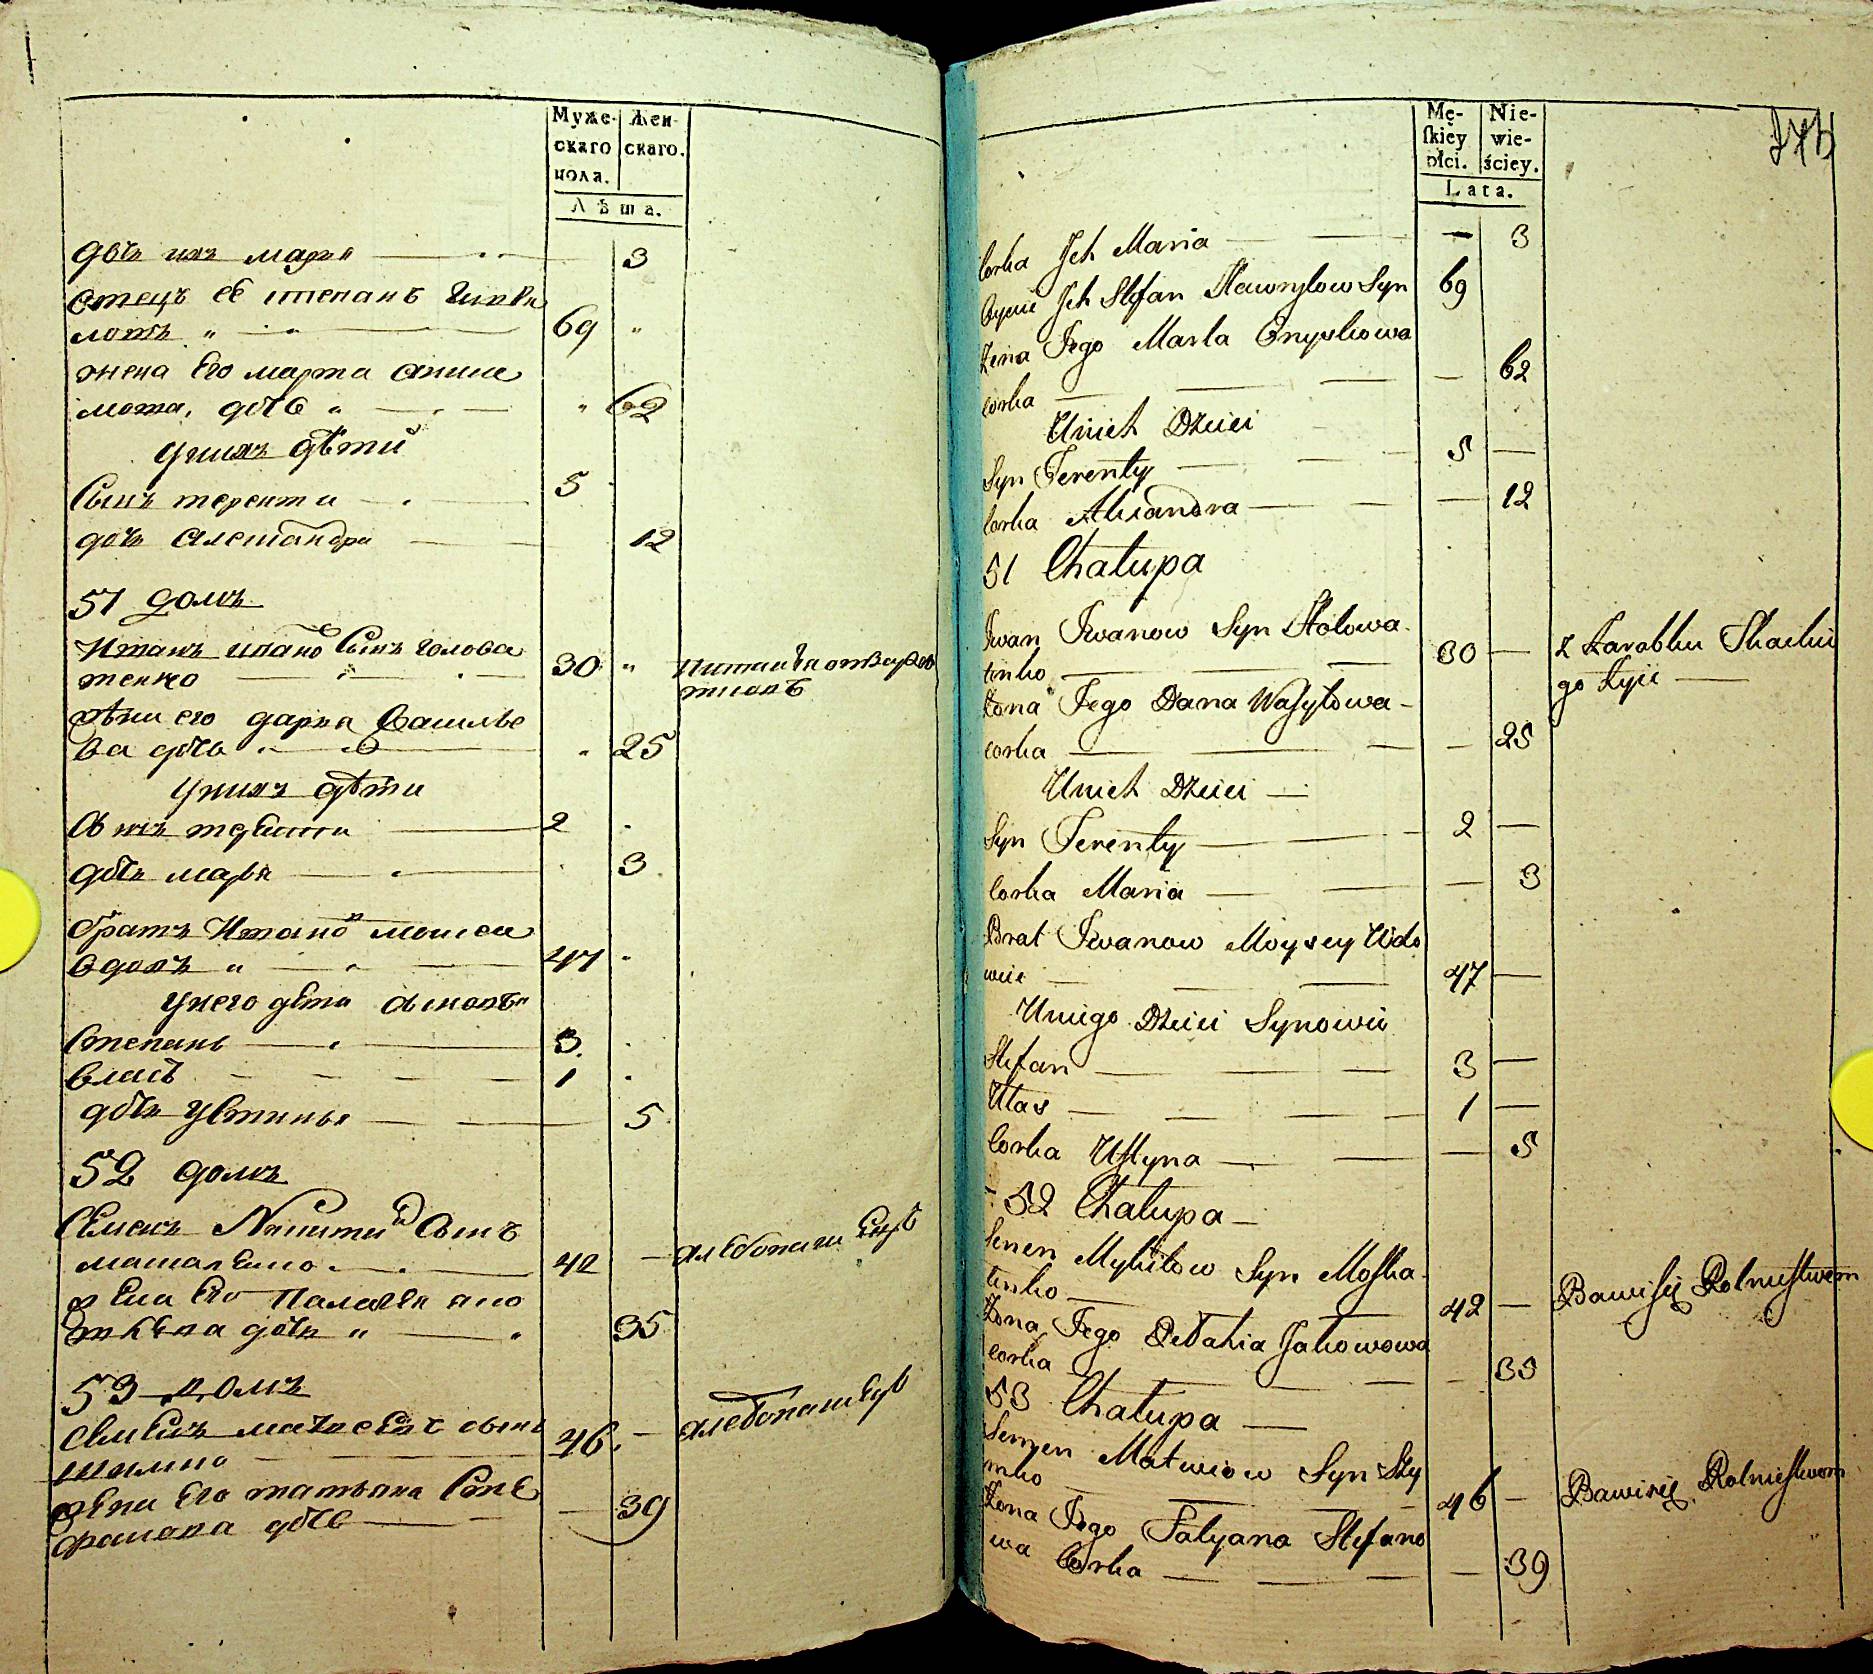 Муже-
скаго
пола.
Жен-
скаго.
Лѣта.
дочь ихъ марья 3
отецъ её степанъ
69
жена Его марта
дочь 62
у нихъ дѣти
Сынъ терентий 5
дочь александра 12
51 домъ
Иванъ ивановъ Сынъ голова
тенко 30
жена его дарья Василье
ва дочь 25
у нихъ дѣти
Сынъ 2
дочь марья 3
братъ Ивановъ моисей
вдовъ 47
у него дѣти Сыновья
Степанъ 3
власъ 1
дочь Устинья 5
52 домъ
Семенъ Никитинъ Сынъ
42
жена Его Палагея
дочь 35
53 домъ
Семенъ сынъ
46
жена Его татьяна Сте
фанова дочь 39
Mę-
skiey
płci.
Nie-
wie-
ściey.
Lata.
Corka Jch Maria — 3
Oyciec Jch Stefan Hawryłow Syn 69
Żona Jego Marta Onyskowa
corka — 62
Unich Dzieci
Syn Terenty 5 —
Corka Alexandra — 12
51 Chałupa
Jwan Jwanow Syn Hołowa
tenko 30 —
z Zarobku
go żyie
Żona Jego Daria Wasylowa
corka — 25
Unich Dzieci
Syn Terenty 2 —
Corka Maria — 3
Brat Jwanow Moysey Wdo
wiec 47 —
Uniego Dzieci Synowie
Stefan 3 —
Ułas 1 —
Corka Ustyna — 5
52 Chałupa
Semen Mykitow Syn Moska
tenko 42 —
Bawi się Rolnictwem
Żona Jego Pełahia Jakowowa
corka — 35
53 Chałupa
Semen Matwiow Syn Szy
mko 46 —
Bawi się Rolnictwem
Żona Jego Tatyana Stefano
wa Corka — 39